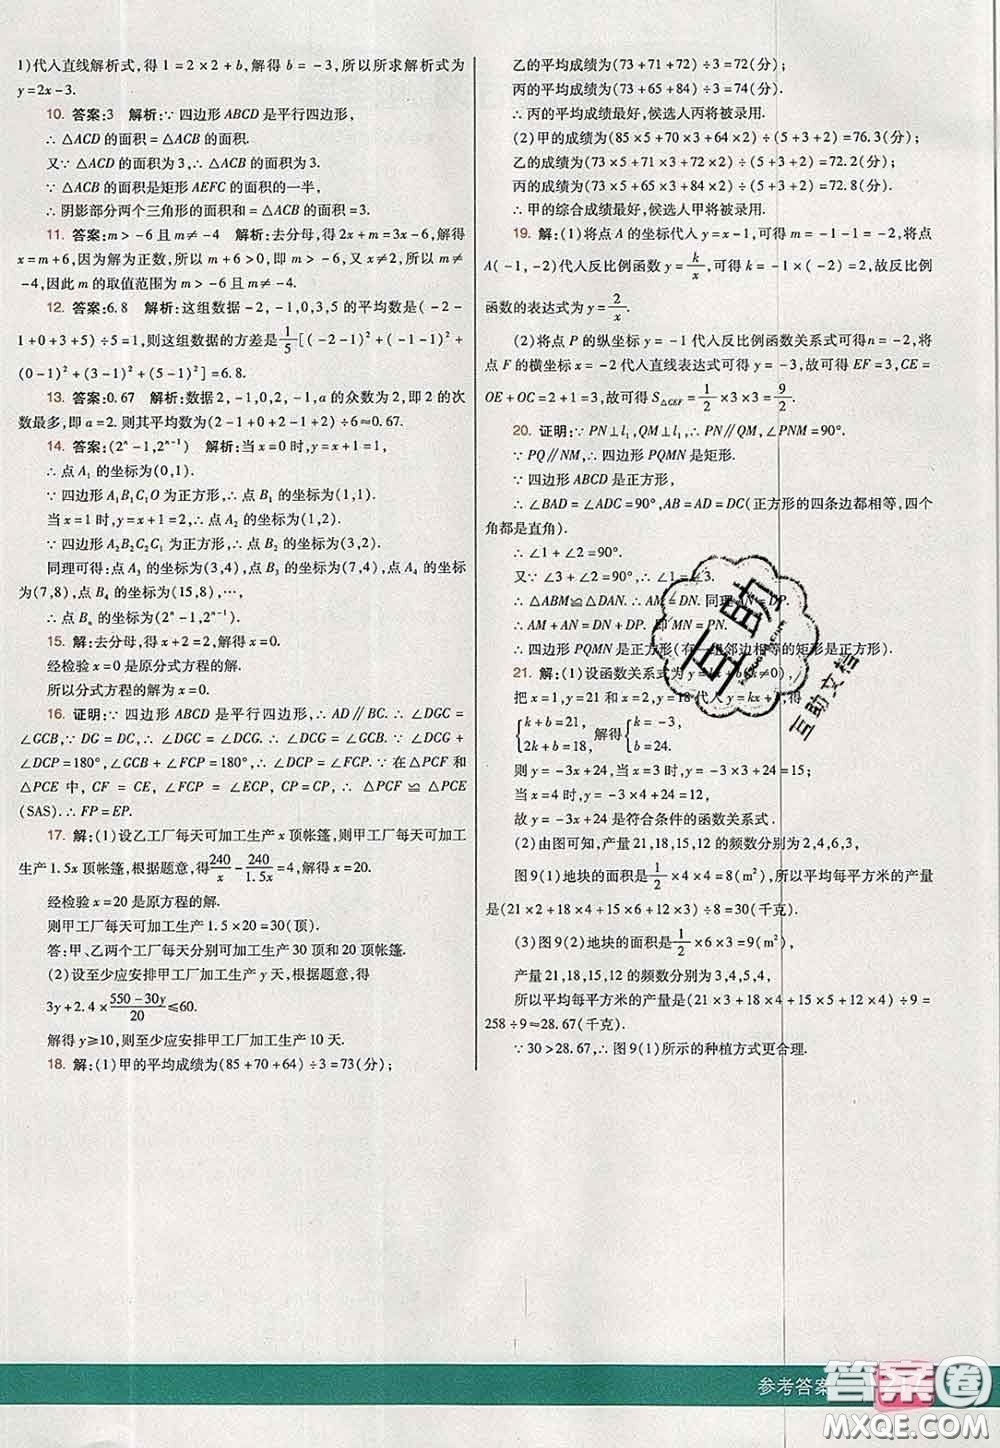 1)代入直线解析式,得 1 = 2 × 2 + b,解得 b = -3,所以所求解析式为
y = 2x - 3.
10. 答案:3 解析:∵ 四边形 ABCD 是平行四边形,
∴ △ACD 的面积 = △ACB 的面积.
又∵ △ACD 的面积为 3,∴ △ACB 的面积为 3.
∵ △ACB 的面积是矩形 AEFC 的面积的一半,
∴ 阴影部分两个三角形的面积和 = △ACB 的面积 = 3.
11. 答案:m > -6 且 m ≠ -4 解析:去分母,得 2x + m = 3x - 6,解得
x = m + 6,因为解为正数,所以 m + 6 > 0,即 m > -6,且 x ≠ 2,所以 m
≠ -4,因此 m 的取值范围为 m > -6 且 m ≠ -4.
12. 答案:6.8 解析:这组数据 -2, -1,0,3,5 的平均数是( -2 -
1 + 0 + 3 + 5) ÷ 5 = 1,则这组数据的方差是 1/5 [( -2 - 1)² + ( -1 - 1)² +
(0 - 1)² + (3 - 1)² + (5 - 1)²] = 6.8.
13. 答案:0.67 解析:数据 2, -1,0,2, -1,a 的众数为 2,即 2 的次
数最多,即 a = 2. 则其平均数为(2 - 1 + 0 + 2 - 1 + 2) ÷ 6 ≈ 0.67.
14. 答案:(2ⁿ - 1,2ⁿ⁻¹) 解析:当 x = 0 时,y = x + 1 = 1,
∴ 点 A₁ 的坐标为(0,1).
∵ 四边形 A₁B₁C₁O 为正方形,∴ 点 B₁ 的坐标为(1,1).
当 x = 1 时,y = x + 1 = 2,∴ 点 A₂ 的坐标为(1,2).
∵ 四边形 A₂B₂C₂C₁ 为正方形,∴ 点 B₂ 的坐标为(3,2).
同理可得:点 A₃ 的坐标为(3,4),点 B₃ 的坐标为(7,4),点 A₄ 的坐标
为(7,8),点 B₄ 的坐标为(15,8),…,
∴ 点 Bₙ 的坐标为(2ⁿ - 1,2ⁿ⁻¹).
15. 解:去分母,得 x + 2 = 2,解得 x = 0.
经检验 x = 0 是原分式方程的解.
所以分式方程的解为 x = 0.
16. 证明:∵ 四边形 ABCD 是平行四边形,∴ AD // BC. ∴ ∠DGC =
∠GCB,∵ DG = DC,∴ ∠DGC = ∠DCG. ∴ ∠DCG = ∠GCB. ∵ ∠DCG +
∠DCP = 180°,∠GCB + ∠FCP = 180°,∴ ∠DCP = ∠FCP. ∵ 在△PCF 和
△PCE 中,CF = CE,∠FCP = ∠ECP,CP = CP,∴ △PCF ≌ △PCE
(SAS). ∴ FP = EP.
17. 解:(1)设乙工厂每天可加工生产 x 顶帐篷,则甲工厂每天可加工
生产 1.5x 顶帐篷,根据题意,得 240/x - 240/1.5x = 4,解得 x = 20.
经检验 x = 20 是原方程的解.
则甲工厂每天可加工生产 1.5 × 20 = 30(顶).
答:甲、乙两个工厂每天分别可加工生产 30 顶和 20 顶帐篷.
(2)设至少应安排甲工厂加工生产 y 天,根据题意,得
3y + 2.4 × (550 - 30y)/20 ≤ 60.
解得 y ≥ 10,则至少应安排甲工厂加工生产 10 天.
18. 解:(1)甲的平均成绩为(85 + 70 + 64) ÷ 3 = 73(分);
乙的平均成绩为(73 + 71 + 72) ÷ 3 = 72(分);
丙的平均成绩为(73 + 65 + 84) ÷ 3 = 74(分).
∴ 丙的平均成绩最好,候选人丙将被录用.
(2)甲的成绩为(85 × 5 + 70 × 3 + 64 × 2) ÷ (5 + 3 + 2) = 76.3(分);
乙的成绩为(73 × 5 + 71 × 3 + 72 × 2) ÷ (5 + 3 + 2) = 72.2(分);
丙的成绩为(73 × 5 + 65 × 3 + 84 × 2) ÷ (5 + 3 + 2) = 72.8(分).
∴ 甲的综合成绩最好,候选人甲将被录用.
19. 解:(1)将点 A 的坐标代入 y = x - 1,可得 m = -1 - 1 = -2,将点
A( -1, -2)代入反比例函数 y = k/x,可得 k = -1 × ( -2) = 2,故反比例
函数的表达式为 y = 2/x.
(2)将点 P 的纵坐标 y = -1 代入反比例函数关系式可得 n = -2,将
点 F 的横坐标 x = -2 代入直线表达式可得 y = -3,故可得 EF = 3,CE =
OE + OC = 2 + 1 = 3,故可得 S△CEF = 1/2 × 3 × 3 = 9/2.
20. 证明:∵ PN⊥l₁,QM⊥l₁,∴ PN // QM,∠PNM = 90°.
∵ PQ // NM,∴ 四边形 PQMN 是矩形.
∵ 四边形 ABCD 是正方形,
∴ ∠BAD = ∠ADC = 90°,AB = AD = DC(正方形的四条边都相等,四个
角都是直角).
∴ ∠1 + ∠2 = 90°.
又∵ ∠3 + ∠2 = 90°,∴ ∠1 = ∠3.
∴ △ABM ≌ △DAN. ∴ AM = DN. 同理 AN = DP.
∴ AM + AN = DN + DP. 即 MN = PN.
∴ 四边形 PQMN 是正方形(有一组邻边相等的矩形是正方形).
21. 解:(1)设函数关系式为 y = kx + b(k ≠ 0),
把 x = 1,y = 21 和 x = 2,y = 18 代入 y = kx + b,得
{k + b = 21, 2k + b = 18, 解得 {k = -3, b = 24.
则 y = -3x + 24,当 x = 3 时,y = -3x + 24 = 15;
当 x = 4 时,y = -3x + 24 = 12.
故 y = -3x + 24 是符合条件的函数关系式.
(2)由图可知,产量 21,18,15,12 的频数分别为 2,4,6,3,
图 9(1)地块的面积是 1/2 × 4 × 4 = 8(m²),所以平均每平方米的产量
是(21 × 2 + 18 × 4 + 15 × 6 + 12 × 3) ÷ 8 = 30(千克).
(3)图 9(2)地块的面积是 1/2 × 6 × 3 = 9(m²),
产量 21,18,15,12 的频数分别为 3,4,5,4,
所以平均每平方米的产量是(21 × 3 + 18 × 4 + 15 × 5 + 12 × 4) ÷ 9 =
258 ÷ 9 ≈ 28.67(千克).
∵ 30 > 28.67,∴ 图 9(1)所示的种植方式更合理.
互助
互助文档
参考答案
答案圈
MXQE.COM